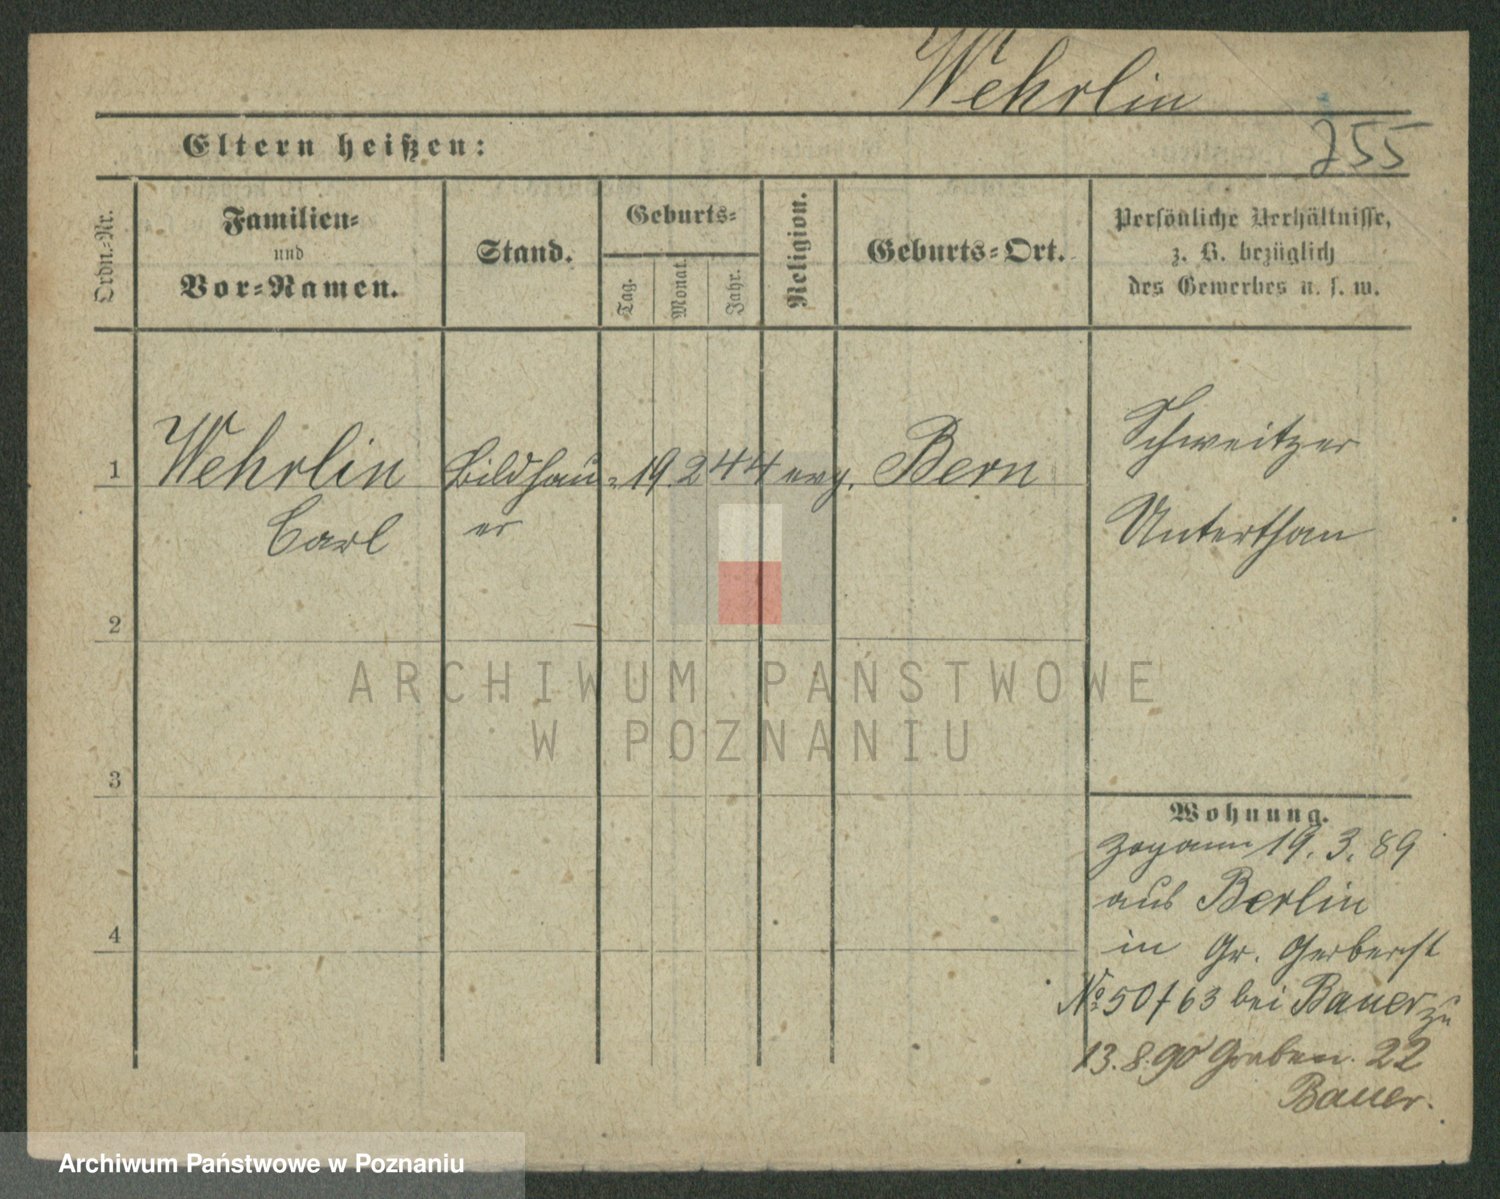 Wehrlin
255
Eltern heißen:
Ordn.-Nr.
Familien-
und
Vor-Namen.
Stand.
Geburts-
Tag.
Monat.
Jahr.
Religion.
Geburts-Ort.
Persönliche Verhältnisse,
z. B. bezüglich
des Gewerbes u. s. w.
1
Wehrlin
Carl
Bildhau-
er
19 2 44
evg.
Bern
Schweitzer
Unterthan
2
3
4
Wohnung.
19. 3. 89
aus Berlin
in Gr. Gerberst
No 50/63 bei Bauer zu
13.8.90 Graben. 22
Bauer.
ARCHIWUM PAŃSTWOWE
W POZNANIU
Archiwum Państwowe w Poznaniu